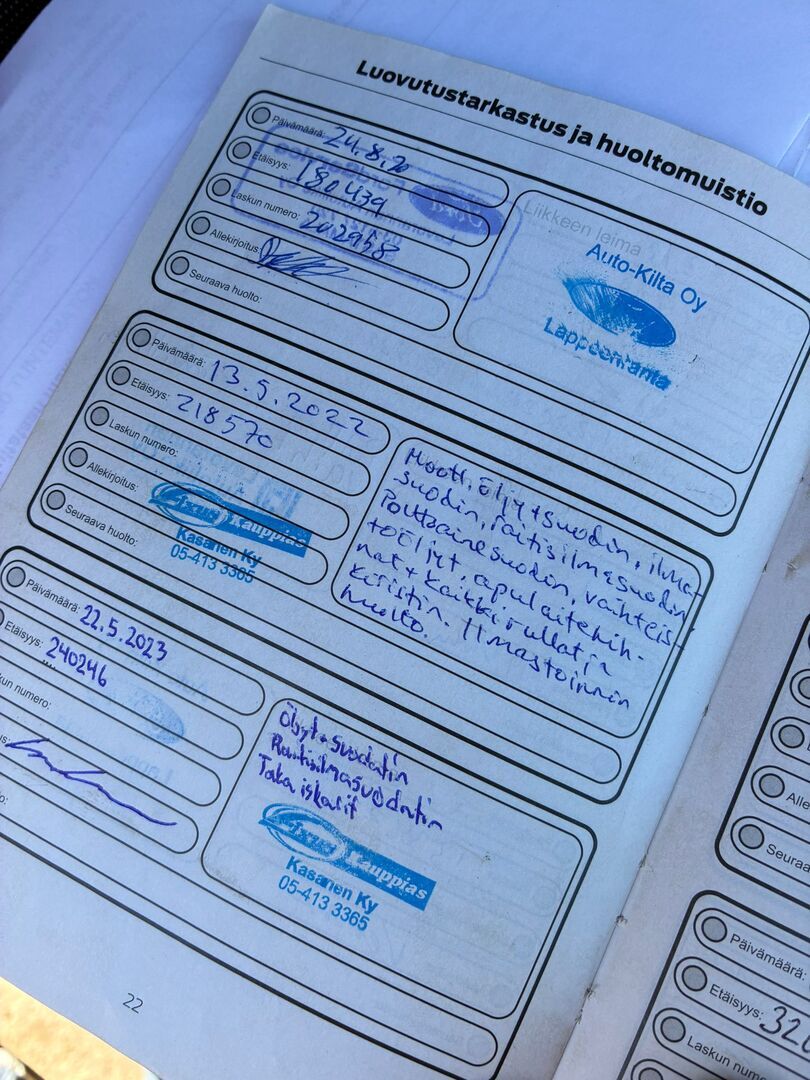 Luovutustarkastus ja huoltomuistio
Päivämäärä: 24.8.20
Etäisyys: 180439
Laskun numero: 202958
Allekirjoitus:
Seuraava huolto:
Liikkeen leima
Auto-Kilta Oy
Lappeenranta
Päivämäärä: 13.5.2022
Etäisyys: 218570
Laskun numero:
Allekirjoitus:
Seuraava huolto:
Fixus Kauppias
Kasanen Ky
05-413 3365
Moott. Öljy+suodin, ilma-
suodin, raitisilmasuodin,
Polttoainesuodin, vaihteis-
toöljyt, apulaitehih-
nat + kaikki rullat ja
kiristin. Ilmastoinnin
huolto.
Päivämäärä: 22.5.2023
Etäisyys: 240246
kun numero:
us:
to:
Öljyt+Suodatin
Raitisilmasuodatin
Taka iskarit
Fixus Kauppias
Kasanen Ky
05-413 3365
22
Alle
Seuraa
Päivämäärä:
Etäisyys: 320
Laskun nume